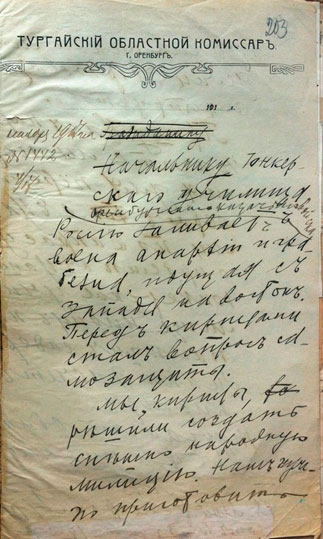 203
ТУРГАЙСКІЙ ОБЛАСТНОЙ КОМИССАРЪ.
Г. ОРЕНБУРГЪ.
191 г.
Начальнику Юнкер-
скаго училища
Россію заливаетъ
волна анархіи и гра-
бежа, идущая съ
Запада на востокъ.
Передъ киргизами
сталъ вопросъ са-
мозащиты.
Мы, киргизы,
рѣшили создать
спешно народную
милицію. Намъ нуж-
но приготовить